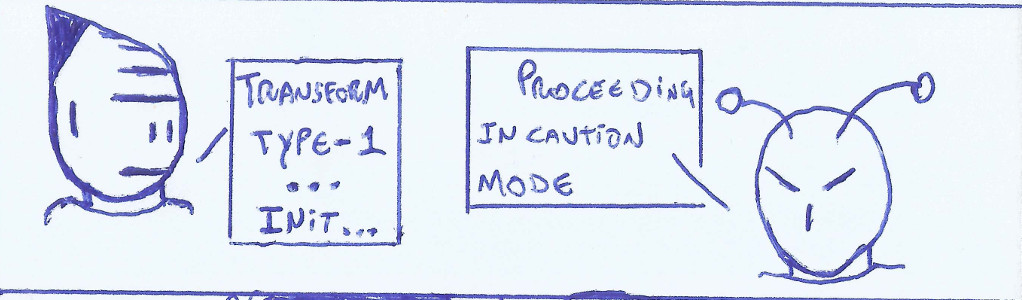 TRANSFORM
TYPE-1
...
INIT...
PROCEEDING
IN CAUTION
MODE